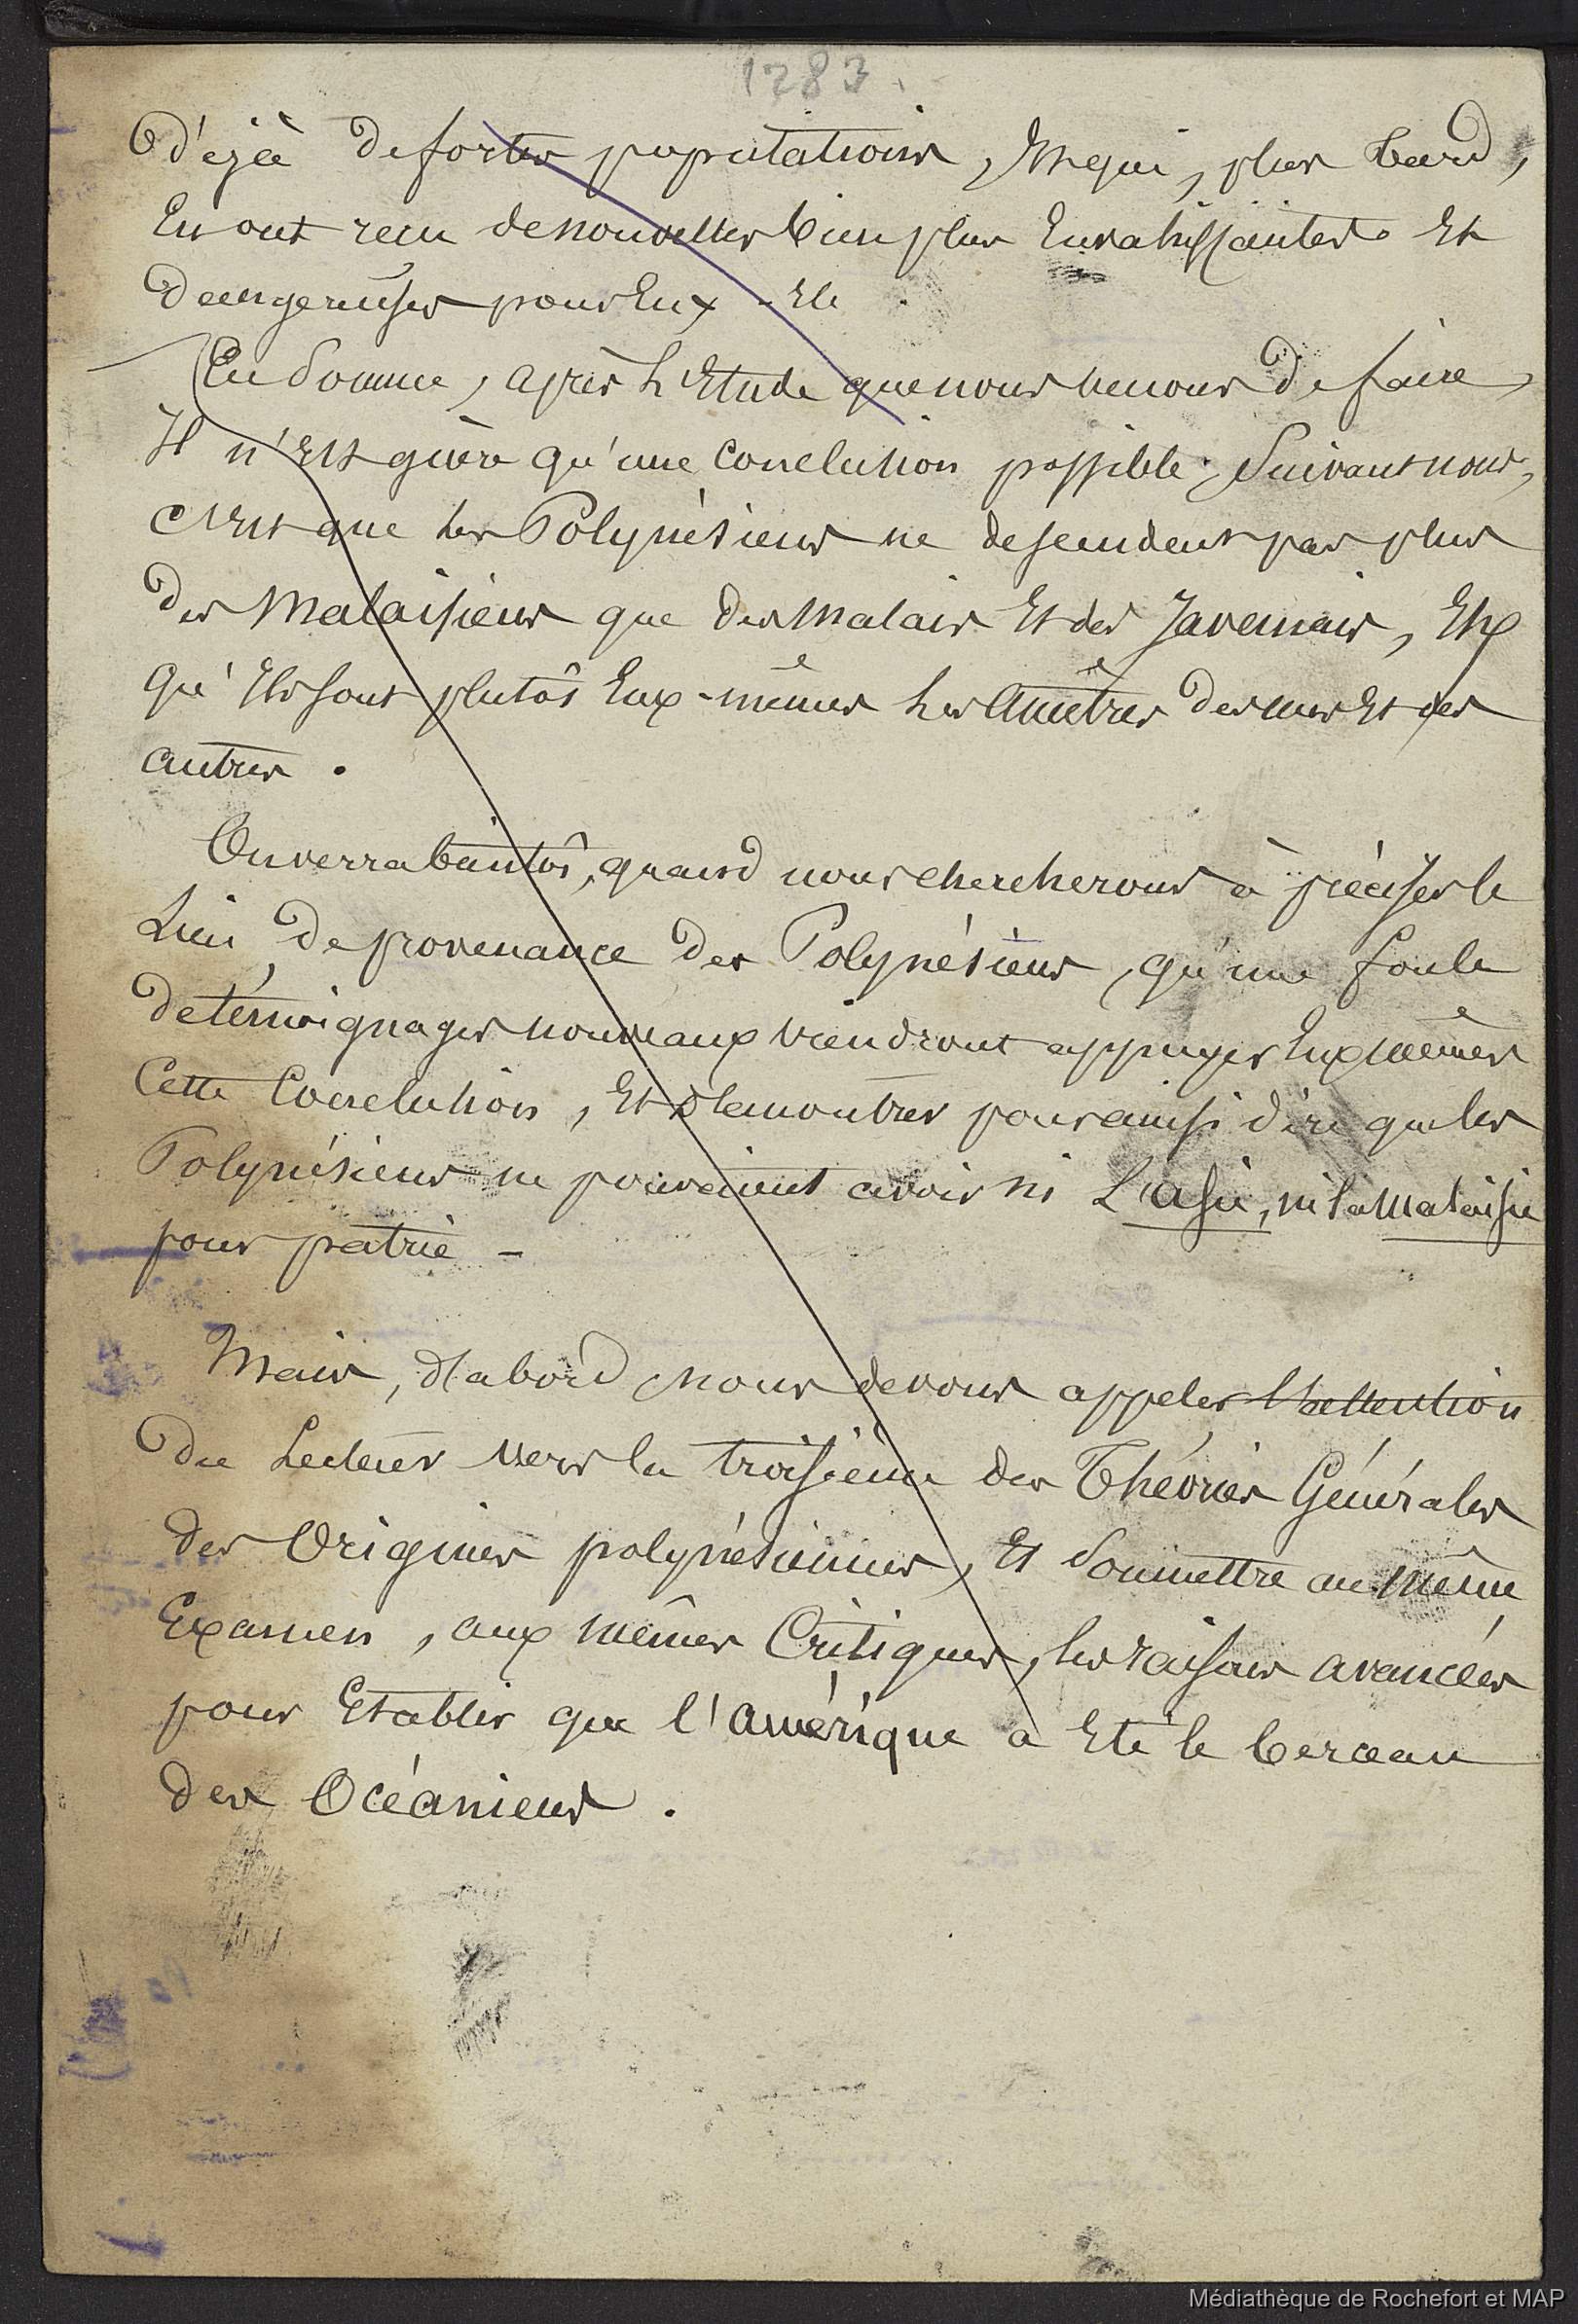 1283.
Déjà de fortes populations, et qui, plus tard,
En ont reçu de nouvelles bien plus Envahissantes Et
Dangereuses pour Eux -
En Somme, après l'Etude que nous venons de faire,
Il n'est guère qu'une Conclusion possible, Suivant nous,
c'est que les Polynésiens ne descendent pas plus
des Malaisiens que des Malais Et des Javanais, Et
qu'Ils sont plutôt Eux-mêmes les Ancêtres des uns Et des
autres.
On verra bientôt, quand nous chercherons à préciser le
Lieu de provenance des Polynésiens, qu'une foule
de témoignages nouveaux viendront appuyer Eux mêmes
Cette Conclusion, Et démontrer pour ainsi dire que les
Polynésiens ne pouvaient avoir ni L'asie, ni la Malaisie
pour patrie -
Mais, d'abord nous devons appeler l'attention
du Lecteur vers la troisième des Théories Générales
des Origines polynésiennes, Et Soumettre au même
Examen, aux mêmes Critiques, les raisons avancées
pour Etablir que l'amérique a Eté le berceau
des Océaniens.
Médiathèque de Rochefort et MAP